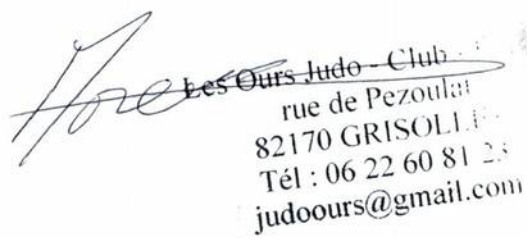 Les Ours Judo - Club
rue de Pezoulat
82170 GRISOLLES
Tél : 06 22 60 81
judoours@gmail.com